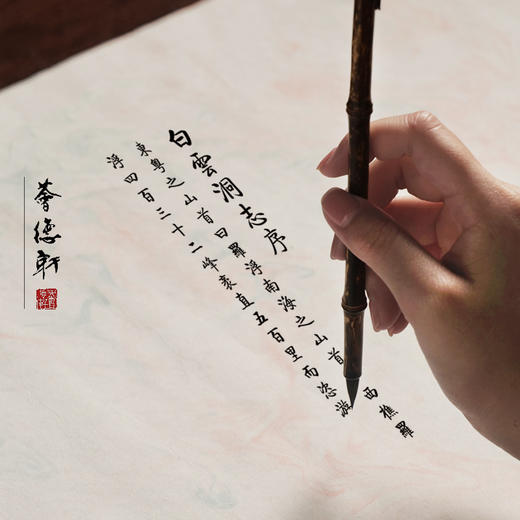 白雲洞志序
東粤之山首曰羅浮南海之山首西樵羅
浮四百三十二峰袤直五百里而恣
薈德軒